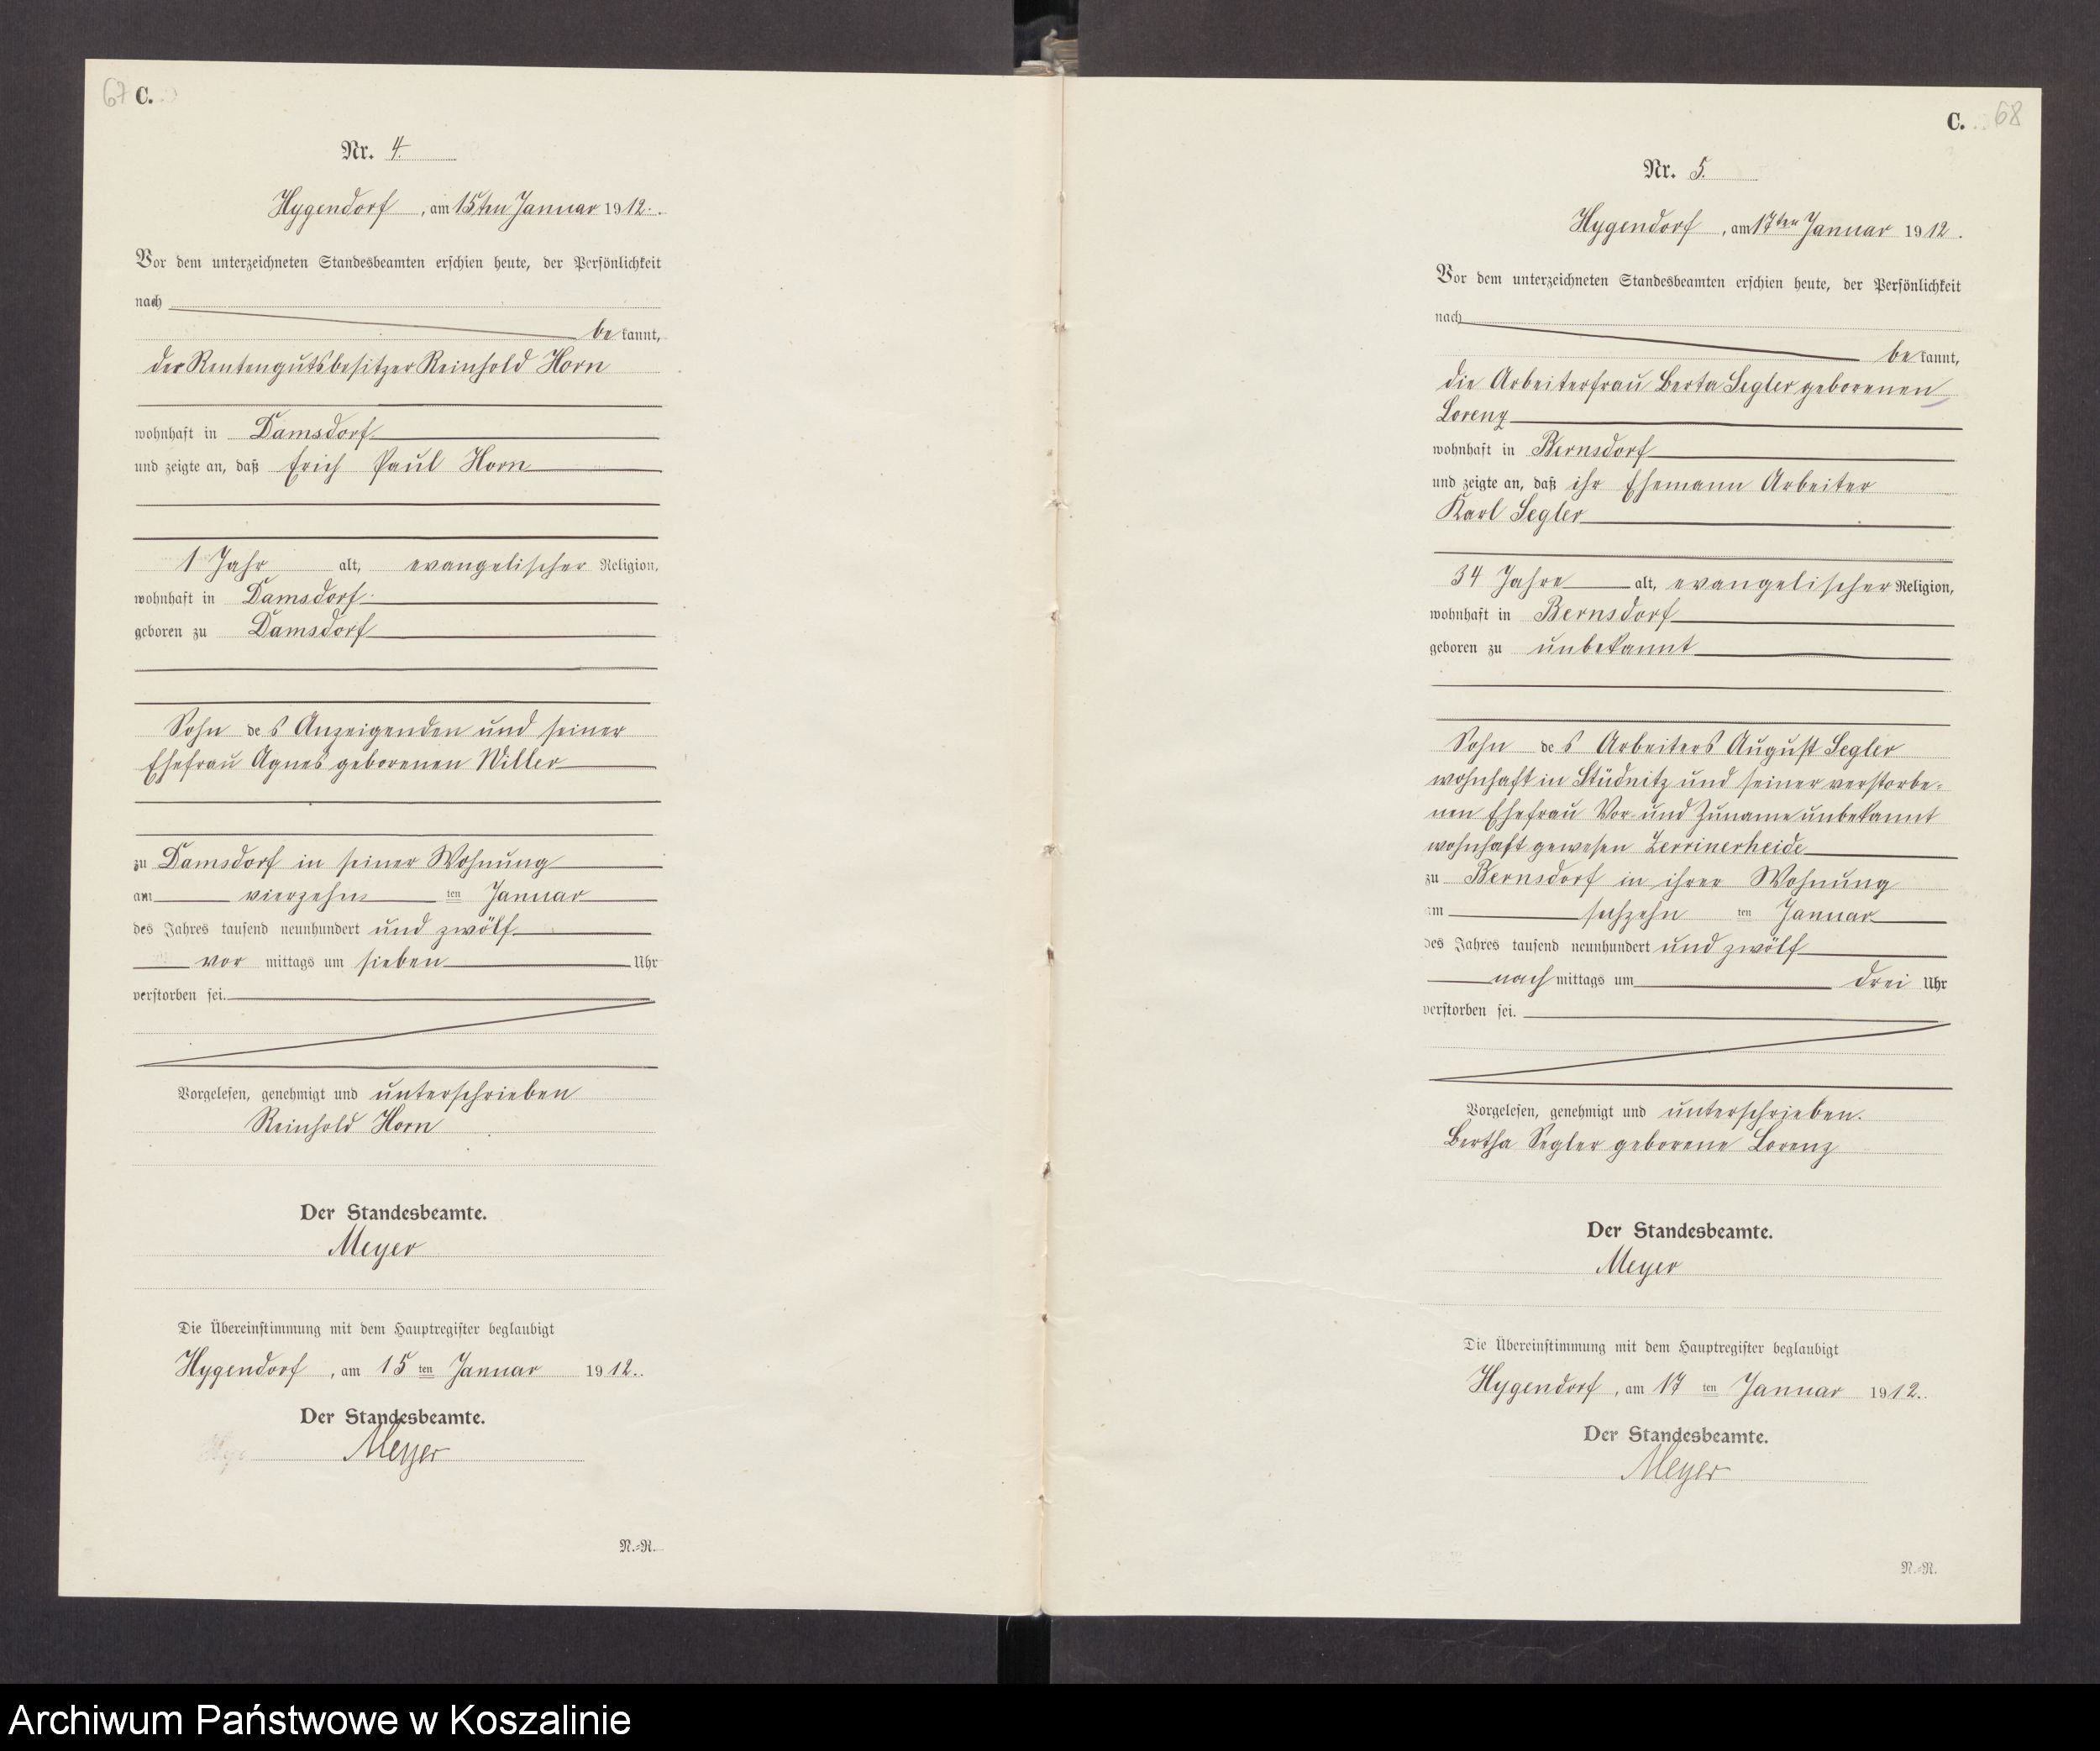 67 C.
Nr. 4.
Hygendorf, am 15ten Januar 1912.
Vor dem unterzeichneten Standesbeamten erschien heute, der Persönlichkeit
nach
bekannt,
der Rentengutsbesitzer Reinhold Horn
wohnhaft in Damsdorf
und zeigte an, daß Erich Paul Horn
1 Jahr alt, evangelischer Religion,
wohnhaft in Damsdorf
geboren zu Damsdorf
Sohn des Anzeigenden und seiner
Ehefrau Agnes geborenen Witter
zu Damsdorf in seiner Wohnung
am vierzehn ten Januar
des Jahres tausend neunhundert und zwölf
vor mittags um sieben Uhr
verstorben sei.
Vorgelesen, genehmigt und unterschrieben
Reinhold Horn
Der Standesbeamte.
Meyer
Die Übereinstimmung mit dem Hauptregister beglaubigt
Hygendorf, am 15 ten Januar 1912.
Der Standesbeamte.
Meyer
N.=R.
C. 68
Nr. 5.
Hygendorf, am 17ten Januar 1912.
Vor dem unterzeichneten Standesbeamten erschien heute, der Persönlichkeit
nach
bekannt,
die Arbeiterfrau Berta Segler geborenen
Lorenz
wohnhaft in Bernsdorf
und zeigte an, daß ihr Ehemann Arbeiter
Karl Segler
34 Jahre alt, evangelischer Religion,
wohnhaft in Bernsdorf
geboren zu unbekannt
Sohn des Arbeiters August Segler
wohnhaft in Stüdnitz und seiner verstorbe-
nen Ehefrau Vor- und Zuname unbekannt
wohnhaft gewesen Zerrinerheide
zu Bernsdorf in ihrer Wohnung
am sechzehn ten Januar
des Jahres tausend neunhundert und zwölf
nach mittags um drei Uhr
verstorben sei.
Vorgelesen, genehmigt und unterschrieben.
Bertha Segler geborene Lorenz
Der Standesbeamte.
Meyer
Die Übereinstimmung mit dem Hauptregister beglaubigt
Hygendorf, am 17 ten Januar 1912.
Der Standesbeamte.
Meyer
N.=R.
Archiwum Państwowe w Koszalinie